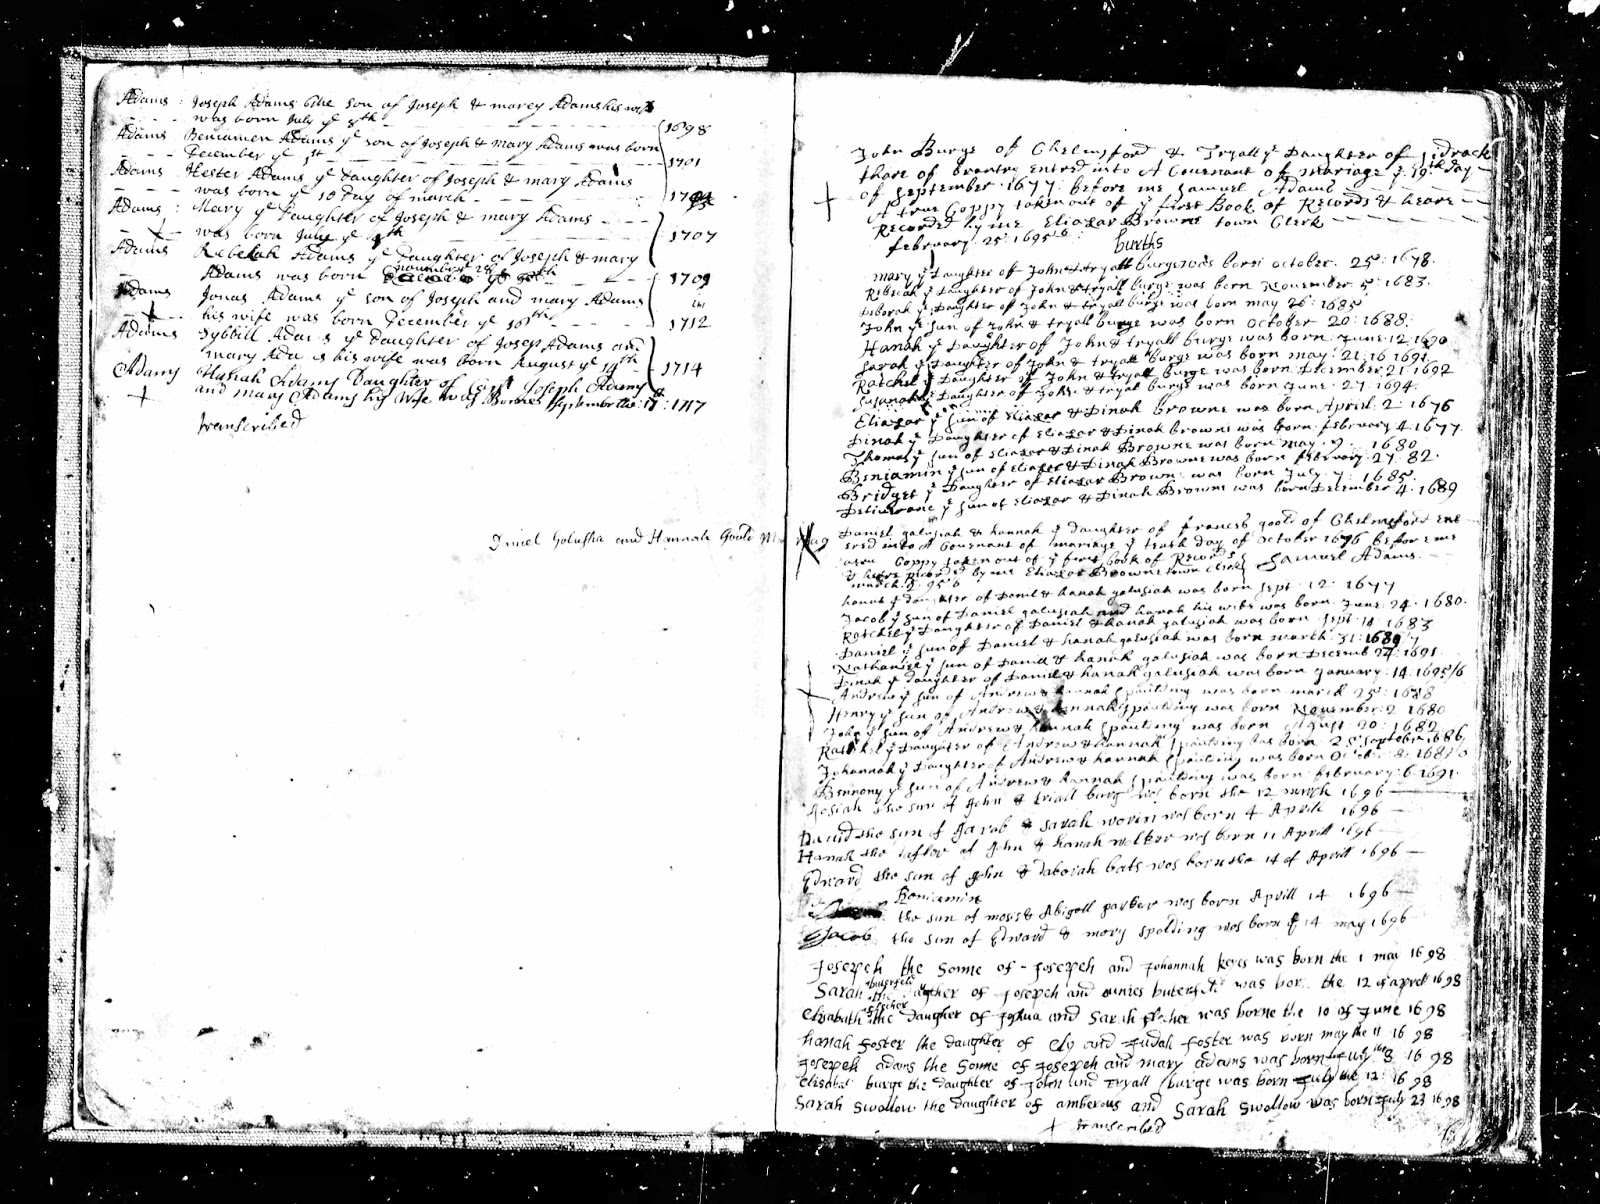 Adams : Joseph Adams the son of Joseph & marey Adams his wife
was born July ye 8th 1698
Adams Beniamen Adams ye son of Joseph & mary Adams was born
December ye 1st 1701
Adams Hester Adams ye Daughter of Joseph & mary Adams
was born ye 10 Day of march
Adams : Mary ye Daughter of Joseph & mary Adams
was born July ye 1707
Adams Rebekah Adams ye Daughter of Joseph & mary
Adams was born november 1709
Adams Jonas Adams ye son of Joseph and mary Adams
his wife was born December ye 16th in 1712
Adams Sybbill Adams ye daughter of Josep Adams and
mary Ada s his wife was born August ye 14th 1714
Adams Hanah Adams Daughter of Joseph Adams
and mary Adams his Wife was Borne September the 17 : 1717
transcribed
Daniel Golusha and Hannah Goold
John Burge of Chelmsford & Tryall ye Daughter of Sidrack
thare of brantry Entred into A Couenant of mariage ye 19th day
of September 1677 before me Samuel Adams
A true Coppy taken out of ye first Book of Records & heare
Recorded by me Eliazar Browne town Clerk
february 25 1695/6
burths
mary ye Daughter of John & tryall burge was born october 25 : 1678.
Rebecah ye Daughter of John & tryall burge was born Nouember 5 : 1683.
Deborah ye Daughter of John & tryall burge was born may 26 : 1685
John ye sun of John & tryall burge was born October 20 : 1688 :
Hanah ye Daughter of John & tryall burge was born June 12 1690
Sarah ye Daughter of John & tryall burge was born may : 21 : 1691
Ratchel ye Daughter of John & tryall burge was born December 21 1692
Susanah ye Daughter of John & tryall burge was born June : 27 1694.
Eliazar ye sun of Eliazar & Dinah Browne was born Aprill 2 : 1676
Dinah ye Daughter of Eliazar & Dinah browne was born february 4 1677.
Thomas ye sun of Eliazar & Dinah Browne was born may 1680
Beniamin ye sun of Eliazer & Dinah Browne was born february 27 82.
Bridget ye Daughter of Eliazar Browne was born July 7 1685.
Deliverance ye sun of Eliazar & Dinah Browne was born December 4 1689
Daniel galusiah & hannah ye daughter of francis goold of Chelmsford Ent
ered into A Couenant of mariage ye tenth day of October 1676 before me
Coppy taken out of ye first book of Records Samuel Adams
& heare recorded by me Eliazar Browne town Clerk
march
hanah ye daughter of Daniel & hanah galusiah was born Sept 12 1677
Jacob ye sun of Daniel galusiah and hanah his wife was born June 24 1680.
Ratchel ye Daughter of Daniel & hanah galusiah was born Sept 14 1683
Daniel ye sun of Daniel & hanah galusiah was born march 31 :
Nathaniel ye sun of Daniel & hanah galusiah was born Decemb 24 : 1691
Dinah ye daughter of Daniel & hanah galusiah was born January 14 1695/6
Andrew ye sun of Andrew & hannah spaulding was born march 25 : 1678
Henry ye sun of Andrew & hannah spaulding was born Nouember 2 1680
John ye sun of Andrew & hannah spaulding was born August 20 : 1682
Ratchel ye Daughter of Andrew & hannah spaulding was born 25 September 1686
Johannah ye Daughter of Andrew & hannah spaulding was born
Bennony ye sun of Andrew & hannah spaulding was born february 6 1691.
Josiah the sun of John & triall burg was born the 12 march 1696
Dauid the sun of Jacob & sarah warin was born 4 Aprill 1696
Hanah the dafter of John & hanah walker was born 11 Aprill 1696
Edward the sun of John & Daborah bats was born the 14 of Aprill 1696
Beniamin
the sun of moses & Abigell parker was born Aprill 14 1696
Jacob the sun of Edward & mary spolding was born ye 14 may 1696
Josepeh the sonne of Josepeh and Johannah keyes was born the 1 may 1698
Sarah buterfeld the daugher of Josepeh and buterfeld was born the 12 of aprell 1698
Elisabath flecher the daugher of Joshua and Sarah flecher was borne the 10 of June 1698
hanah foster the daughter of Ely and Judah foster was born may the 11 1698
Josepeh adams the sonne of Josepeh and mary adams was born July the 8 1698
Elisabat burge the daughter of John and Tryall burge was born July the 12 : 1698
Sarah Swollow the daughter of amberous and Sarah Swollow was born July 23 1698
transcribed